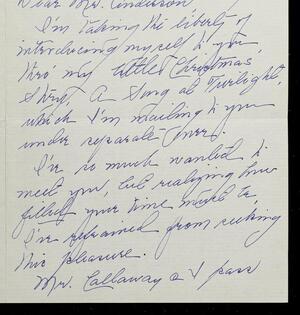 Dear Mrs. Anderson
I'm taking the liberty of
introducing myself to you,
thro' my little Christmas
Story, A Song at Twilight,
which I'm mailing to you
under separate cover.
I've so much wanted to
meet you, but realizing how
filled your time must be,
I've refrained from seeking
this pleasure.
Mr. Callaway & I pass